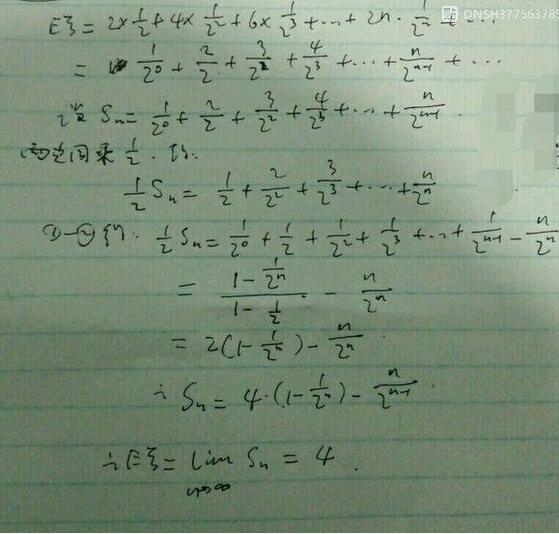 DNSH37756378
Eξ = 2×1/2 + 4×1/2² + 6×1/2³ + … + 2n·1/2ⁿ + …
= 1/2⁰ + 2/2 + 3/2² + 4/2³ + … + n/2ⁿ⁻¹ + …
设 Sₙ = 1/2⁰ + 2/2 + 3/2² + 4/2³ + … + n/2ⁿ⁻¹.
两边同乘 1/2. 得:
1/2 Sₙ = 1/2 + 2/2² + 3/2³ + … + n/2ⁿ
①-②得: 1/2 Sₙ = 1/2⁰ + 1/2 + 1/2² + 1/2³ + … + 1/2ⁿ⁻¹ - n/2ⁿ
= (1 - 1/2ⁿ)/(1 - 1/2) - n/2ⁿ
= 2(1 - 1/2ⁿ) - n/2ⁿ
∴ Sₙ = 4·(1 - 1/2ⁿ) - n/2ⁿ⁻¹.
∴ Eξ = lim Sₙ = 4.
n→∞